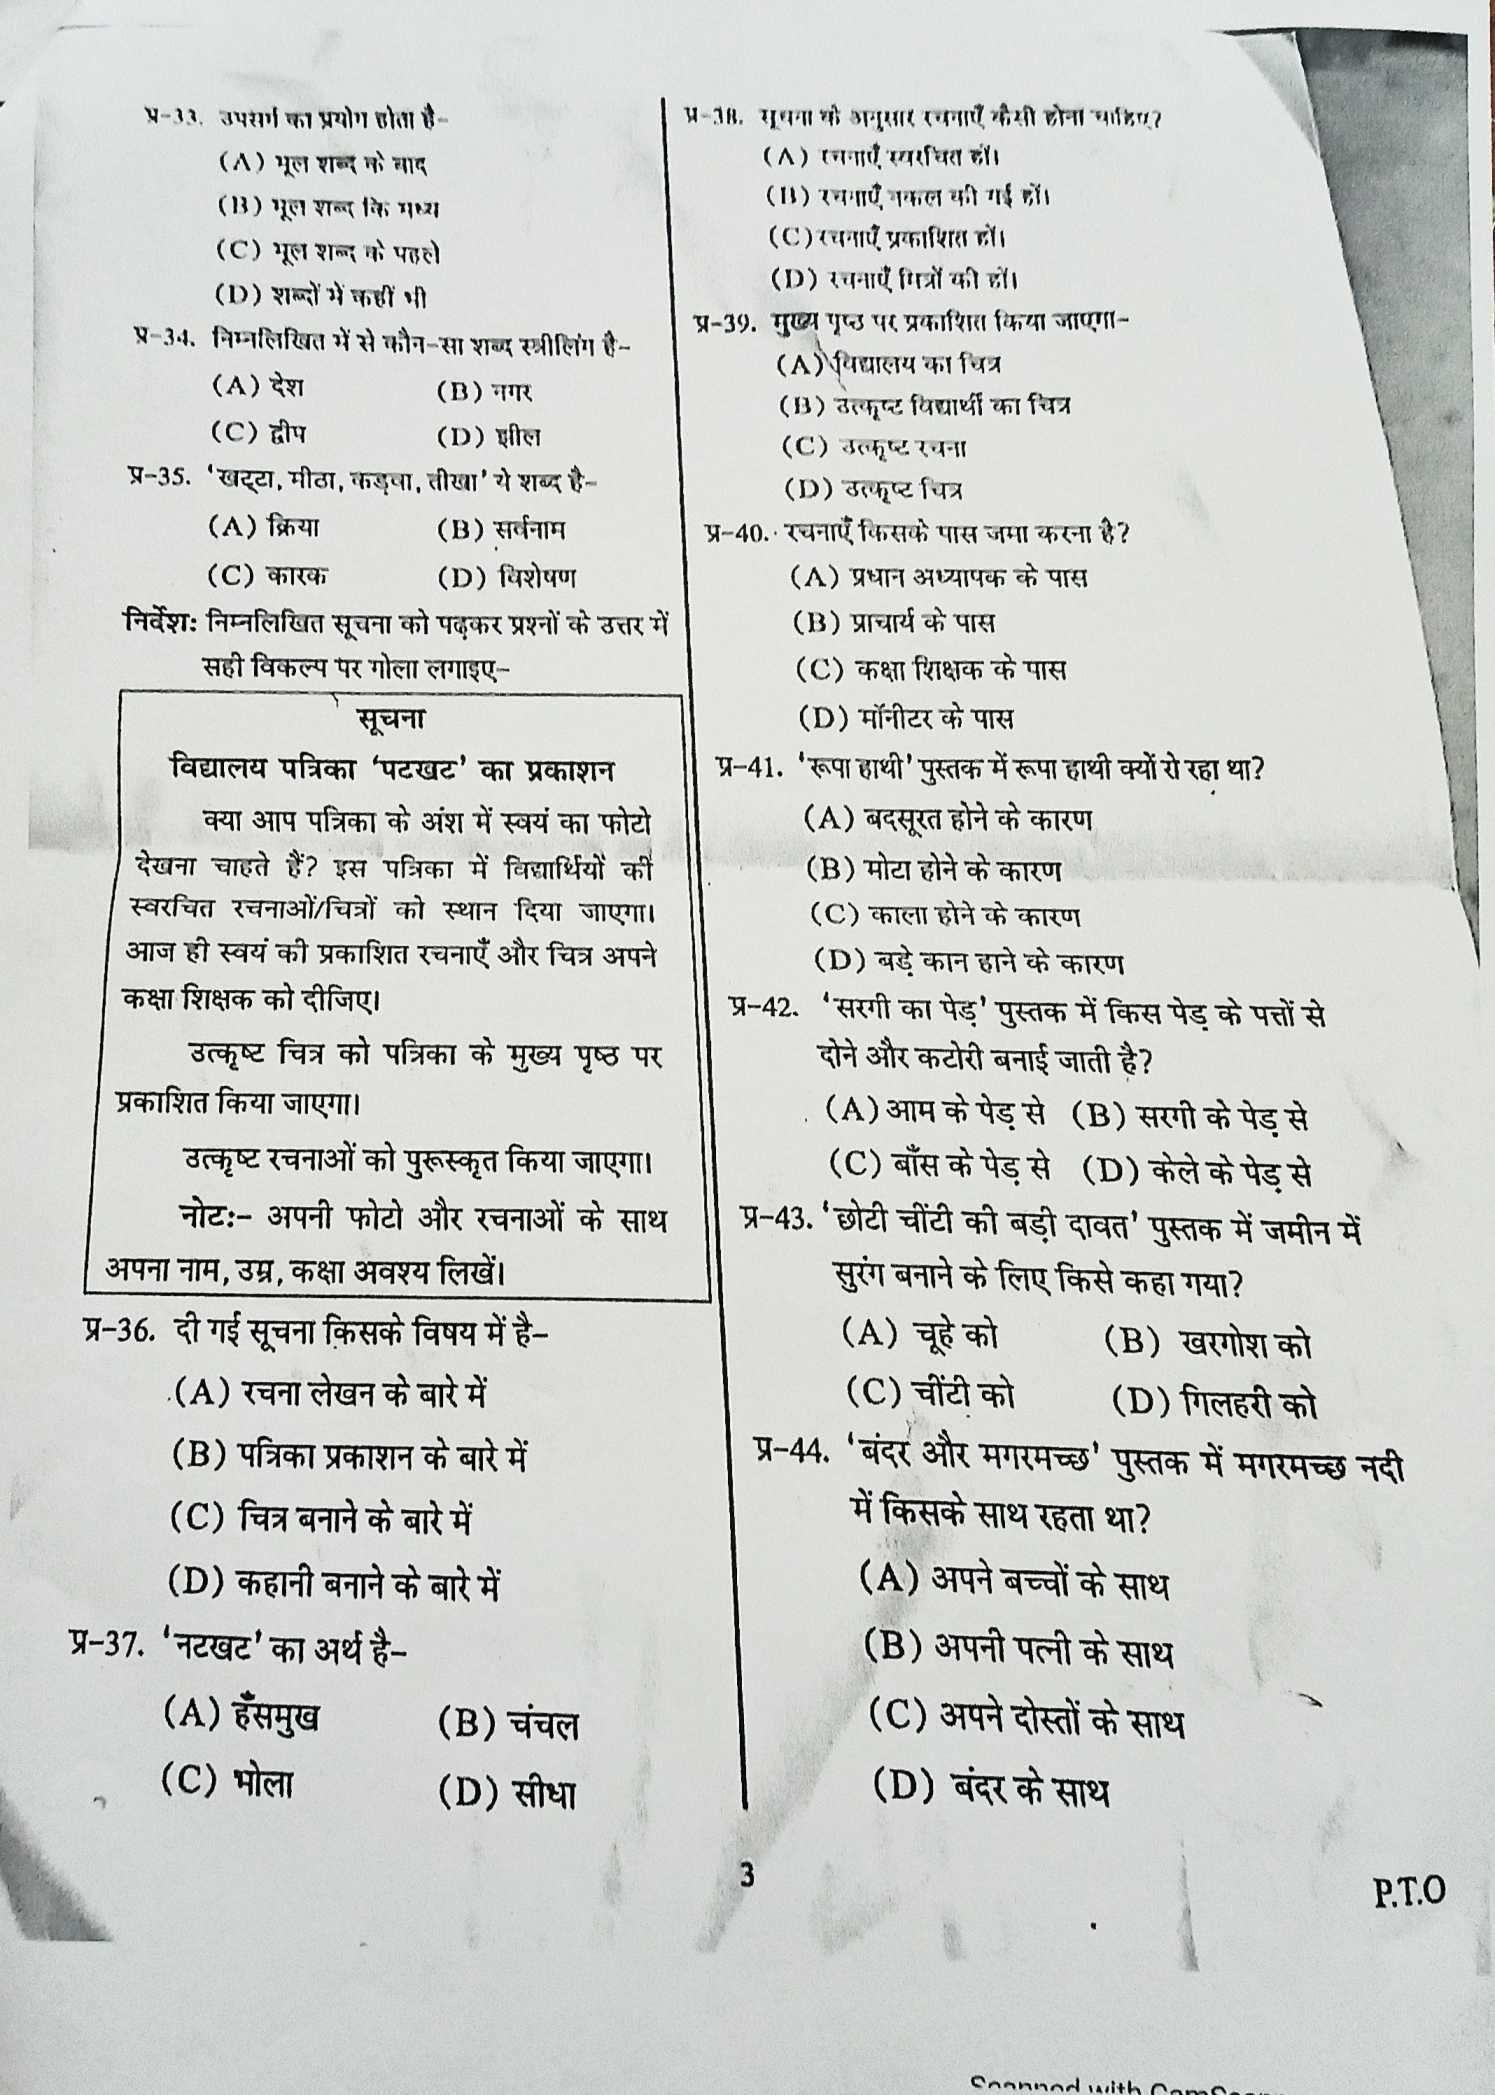 प्र-33. उपसर्ग का प्रयोग होता है-
(A) मूल शब्द के बाद
(B) मूल शब्द कि मध्य
(C) मूल शब्द के पहले
(D) शब्दों में कहीं भी
प्र-34. निम्नलिखित में से कौन-सा शब्द स्त्रीलिंग है-
(A) देश (B) नगर
(C) द्वीप (D) झील
प्र-35. 'खट्टा, मीठा, कड़वा, तीखा' ये शब्द है-
(A) क्रिया (B) सर्वनाम
(C) कारक (D) विशेषण
निर्देश: निम्नलिखित सूचना को पढ़कर प्रश्नों के उत्तर में
सही विकल्प पर गोला लगाइए-
सूचना
विद्यालय पत्रिका 'पटखट' का प्रकाशन
क्या आप पत्रिका के अंश में स्वयं का फोटो
देखना चाहते हैं? इस पत्रिका में विद्यार्थियों की
स्वरचित रचनाओं/चित्रों को स्थान दिया जाएगा।
आज ही स्वयं की प्रकाशित रचनाएँ और चित्र अपने
कक्षा शिक्षक को दीजिए।
उत्कृष्ट चित्र को पत्रिका के मुख्य पृष्ठ पर
प्रकाशित किया जाएगा।
उत्कृष्ट रचनाओं को पुरूस्कृत किया जाएगा।
नोट:- अपनी फोटो और रचनाओं के साथ
अपना नाम, उम्र, कक्षा अवश्य लिखें।
प्र-36. दी गई सूचना किसके विषय में है-
(A) रचना लेखन के बारे में
(B) पत्रिका प्रकाशन के बारे में
(C) चित्र बनाने के बारे में
(D) कहानी बनाने के बारे में
प्र-37. 'नटखट' का अर्थ है-
(A) हँसमुख (B) चंचल
(C) भोला (D) सीधा
प्र-38. सूचना के अनुसार रचनाएँ कैसी होना चाहिए?
(A) रचनाएँ स्वरचित हों।
(B) रचनाएँ नकल की गई हों।
(C) रचनाएँ प्रकाशित हों।
(D) रचनाएँ मित्रों की हों।
प्र-39. मुख्य पृष्ठ पर प्रकाशित किया जाएगा-
(A) विद्यालय का चित्र
(B) उत्कृष्ट विद्यार्थी का चित्र
(C) उत्कृष्ट रचना
(D) उत्कृष्ट चित्र
प्र-40. रचनाएँ किसके पास जमा करना है?
(A) प्रधान अध्यापक के पास
(B) प्राचार्य के पास
(C) कक्षा शिक्षक के पास
(D) मॉनीटर के पास
प्र-41. 'रूपा हाथी' पुस्तक में रूपा हाथी क्यों रो रहा था?
(A) बदसूरत होने के कारण
(B) मोटा होने के कारण
(C) काला होने के कारण
(D) बड़े कान हाने के कारण
प्र-42. 'सरगी का पेड़' पुस्तक में किस पेड़ के पत्तों से
दोने और कटोरी बनाई जाती है?
(A) आम के पेड़ से (B) सरगी के पेड़ से
(C) बाँस के पेड़ से (D) केले के पेड़ से
प्र-43. 'छोटी चींटी की बड़ी दावत' पुस्तक में जमीन में
सुरंग बनाने के लिए किसे कहा गया?
(A) चूहे को (B) खरगोश को
(C) चींटी को (D) गिलहरी को
प्र-44. 'बंदर और मगरमच्छ' पुस्तक में मगरमच्छ नदी
में किसके साथ रहता था?
(A) अपने बच्चों के साथ
(B) अपनी पत्नी के साथ
(C) अपने दोस्तों के साथ
(D) बंदर के साथ
3
P.T.O
Scanned with